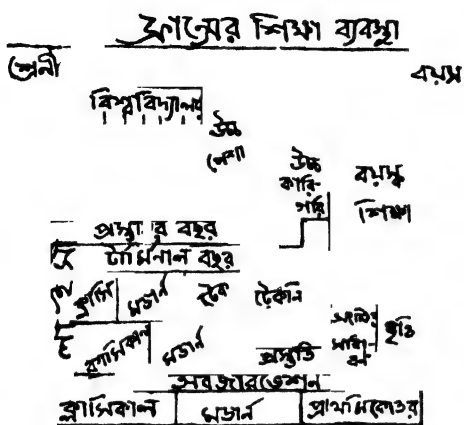 ফ্রান্সের শিক্ষা ব্যবস্থা
শ্রেনী বয়স
বিশ্ববিদ্যালয়
উচ্চ পেশা
উচ্চ কারি-গরি
বয়স্ক শিক্ষা
প্রস্তুতির বছর
টার্মিনাল বছর
ক্লাসি মডার্ন টেক টেকনি
ক্লাসিকাল মডার্ন প্রস্তুতি বৃত্তি
অবজারভেশন
ক্লাসিকাল মডার্ন প্রাথমিকোত্তর